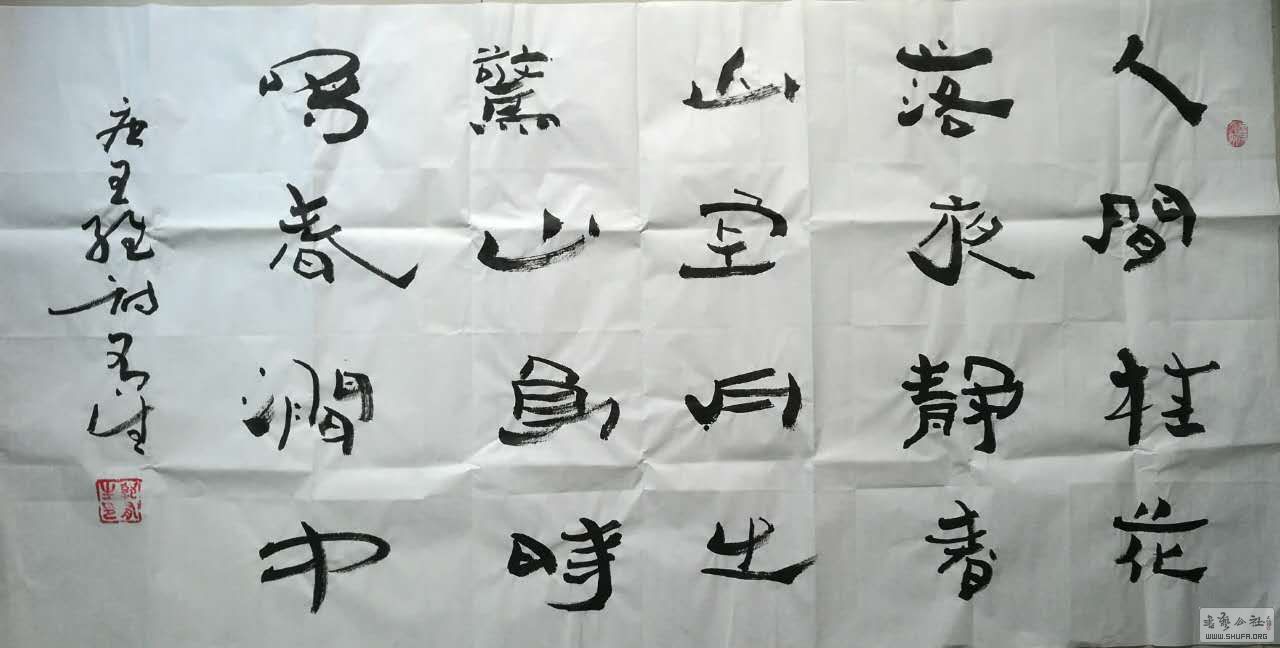 人間桂花
落夜静春
山空月出
驚山鳥時
鳴春澗中
唐王維詩
书艺公社
WWW.SHUFA.ORG